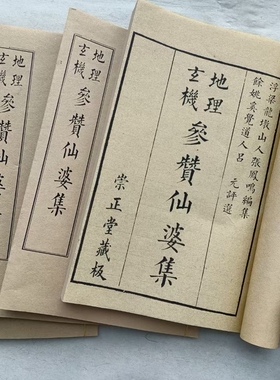 梁龍山人張鳳鳴編集
餘姚覺道人呂元評選
地理
玄機
參贊仙婆集
崇正堂藏板
地理
玄機
參贊仙婆集
地理
玄機
參贊仙婆集